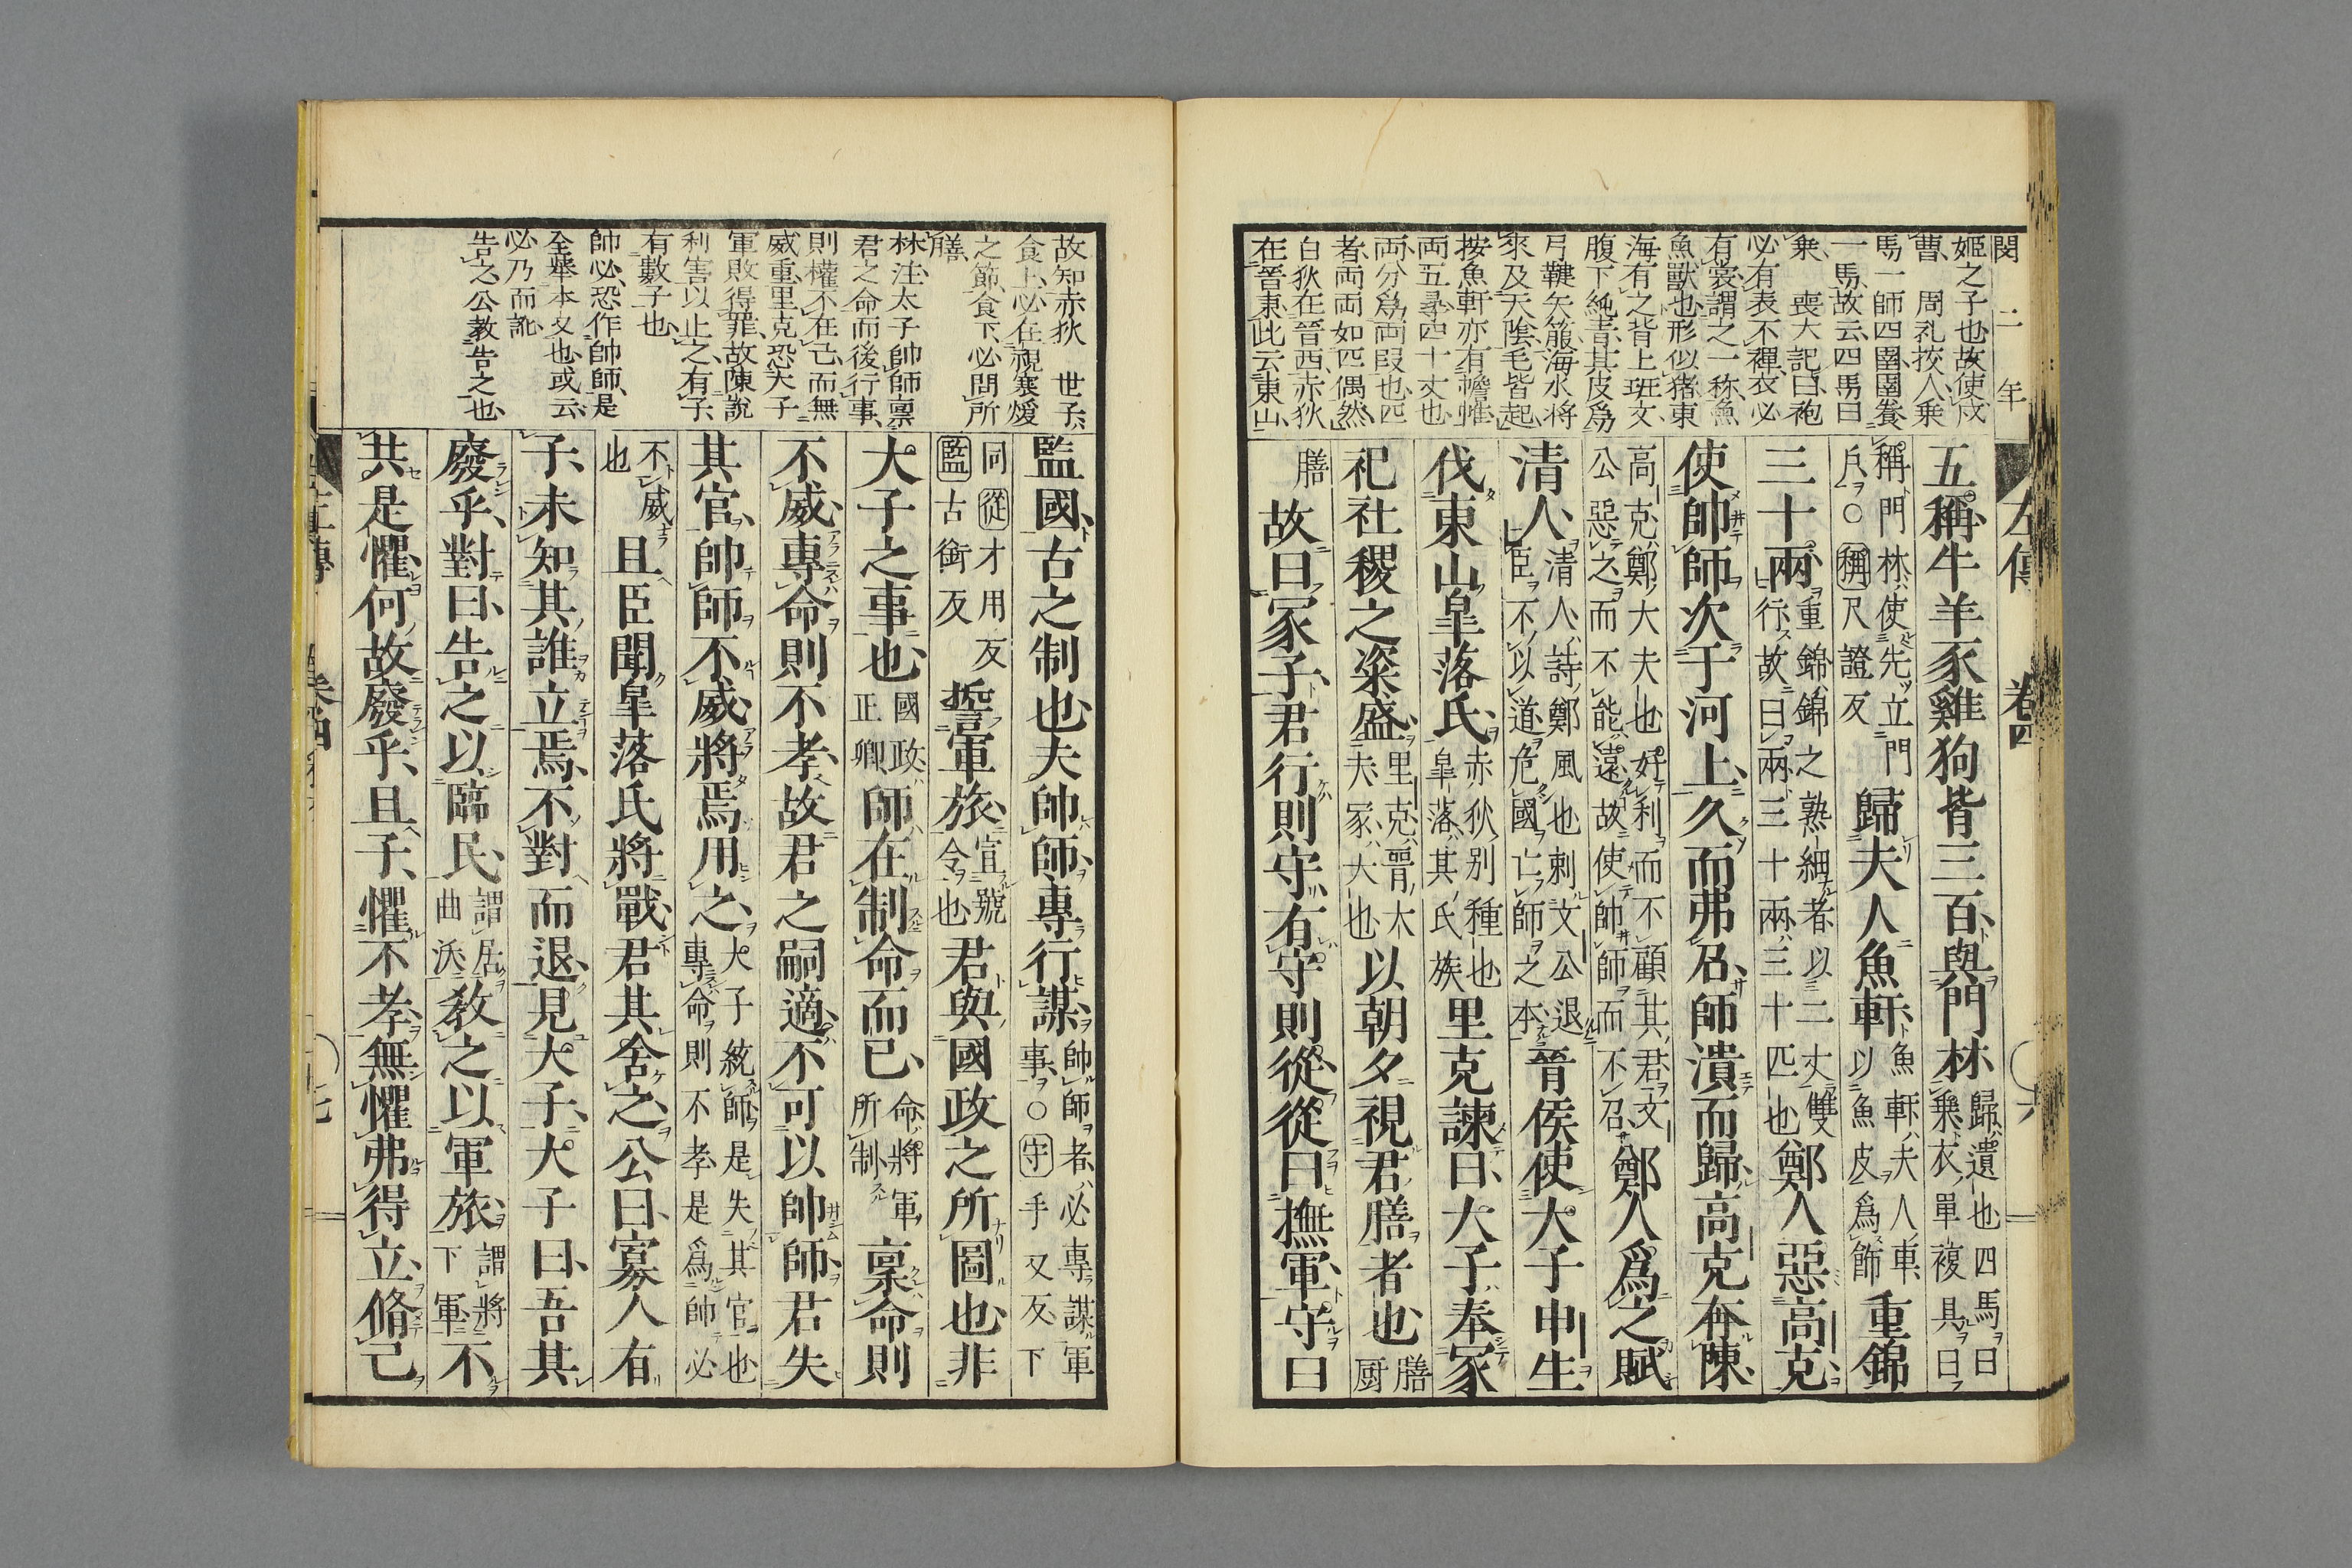 閔二年
姬之子也故使戍
曹 周礼挍人乗
馬一師四圉圉養
一馬故云四馬曰
乗 喪大記曰袍
必有表不禪衣必
有裳謂之一称魚
魚獸也形似猪東
海有之背上班文
腹下純青其皮爲
弓鞬矢箙海水将
來及天陰毛皆起
按魚軒亦有幨帷
両五㝷四十丈也
両分爲両段也匹
者両両如匹偶然
白狄在晉西赤狄
在晉東此云東山
左傳 卷四 六
五稱牛羊豕雞狗皆三百與門材歸遺也四馬曰乗衣單複具曰
稱門材使先立門戶○稱尺證反歸夫人魚軒魚軒夫人車以魚皮爲飾重錦
三十兩重錦錦之熟細者以二丈雙行故曰兩三十兩三十匹也鄭人惡高克
使帥師次于河上久而弗召師潰而歸高克奔陳
高克鄭大夫也好利而不顧其君文公惡之而不能遠故使帥師而不召鄭人爲之賦
清人清人詩鄭風也刺文公退臣不以道危國亡師之本晉侯使大子申生
伐東山皐落氏赤狄別種也皐落其氏族里克諫曰大子奉冢
祀社稷之粢盛里克晉大夫冢大也以朝夕視君膳者也膳厨
膳故曰冢子君行則守有守則從從曰撫軍守曰
故知赤狄 世子
食上必在視寒煖
之節食下必問所
膳
林注太子帥師禀
君之命而後行事
則權不在己而無
威重里克恐大子
軍敗得罪故陳說
利害以止之有子
有數子也
帥必恐作帥師是
全舉本文也或云
必乃而訛
告之公教告之也
監國古之制也夫帥師專行謀帥師者必專謀軍事○守手又反下
同從才用反監古銜反誓軍旅宣號令也君與國政之所圖也非
大子之事也國政正卿師在制命而已命將軍所制稟命則
不威專命則不孝故君之嗣適不可以帥師君失
其官帥師不威將焉用之大子統師是失其官也專命則不孝是爲帥必
不威也且臣聞皐落氏將戰君其舍之公曰寡人有
子未知其誰立焉不對而退見大子大子曰吾其
廢乎對曰告之以臨民謂居曲沃教之以軍旅謂將下軍不
共是懼何故廢乎且子懼不孝無懼弗得立脩己
卷四 七